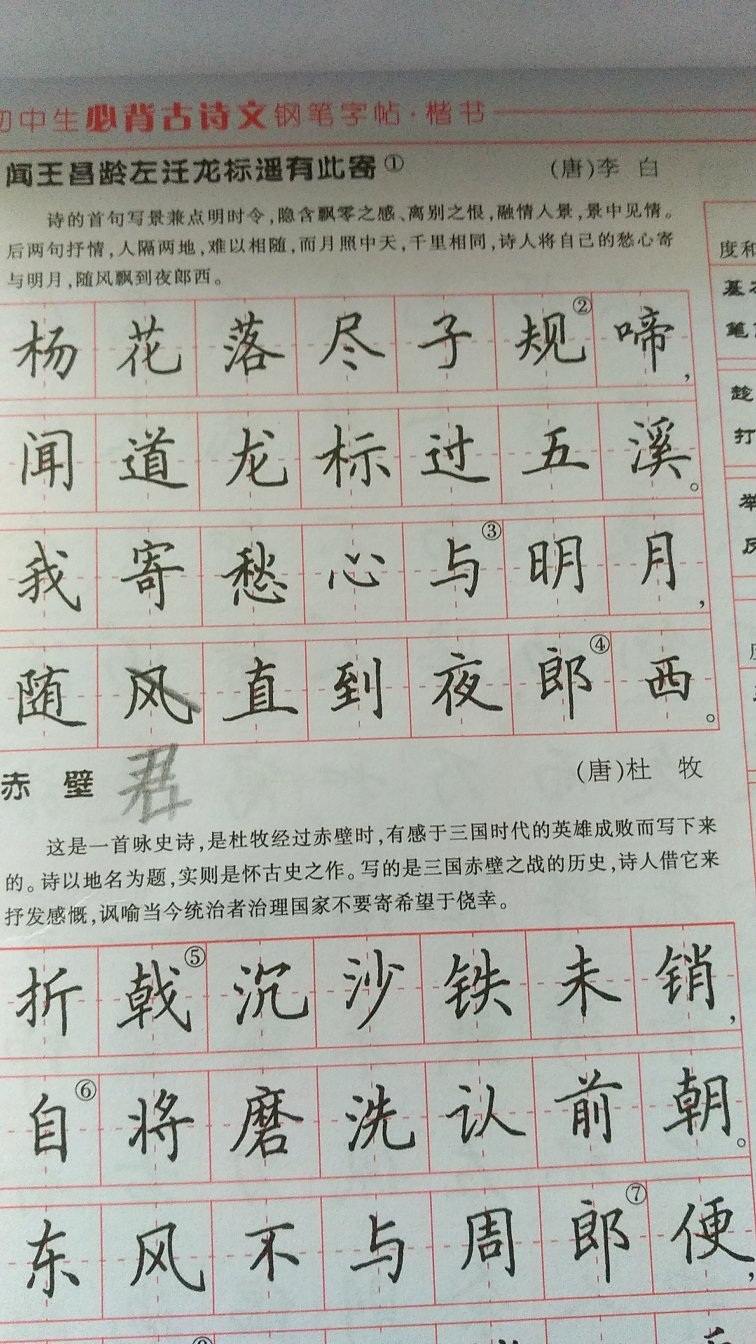 初中生必背古诗文钢笔字帖·楷书
闻王昌龄左迁龙标遥有此寄① (唐)李 白
诗的首句写景兼点明时令,隐含飘零之感、离别之恨,融情人景,景中见情。
后两句抒情,人隔两地,难以相随,而月照中天,千里相同,诗人将自己的愁心寄
与明月,随风飘到夜郎西。
杨花落尽子规②啼,
闻道龙标过五溪。
我寄愁心与③明月,
随风直到夜郎④西。
君
赤 壁 (唐)杜 牧
这是一首咏史诗,是杜牧经过赤壁时,有感于三国时代的英雄成败而写下来
的。诗以地名为题,实则是怀古史之作。写的是三国赤壁之战的历史,诗人借它来
抒发感慨,讽喻当今统治者治理国家不要寄希望于侥幸。
折戟⑤沉沙铁未销,
自⑥将磨洗认前朝。
东风不与周郎⑦便,
度和
基本
笔
趁
打
举